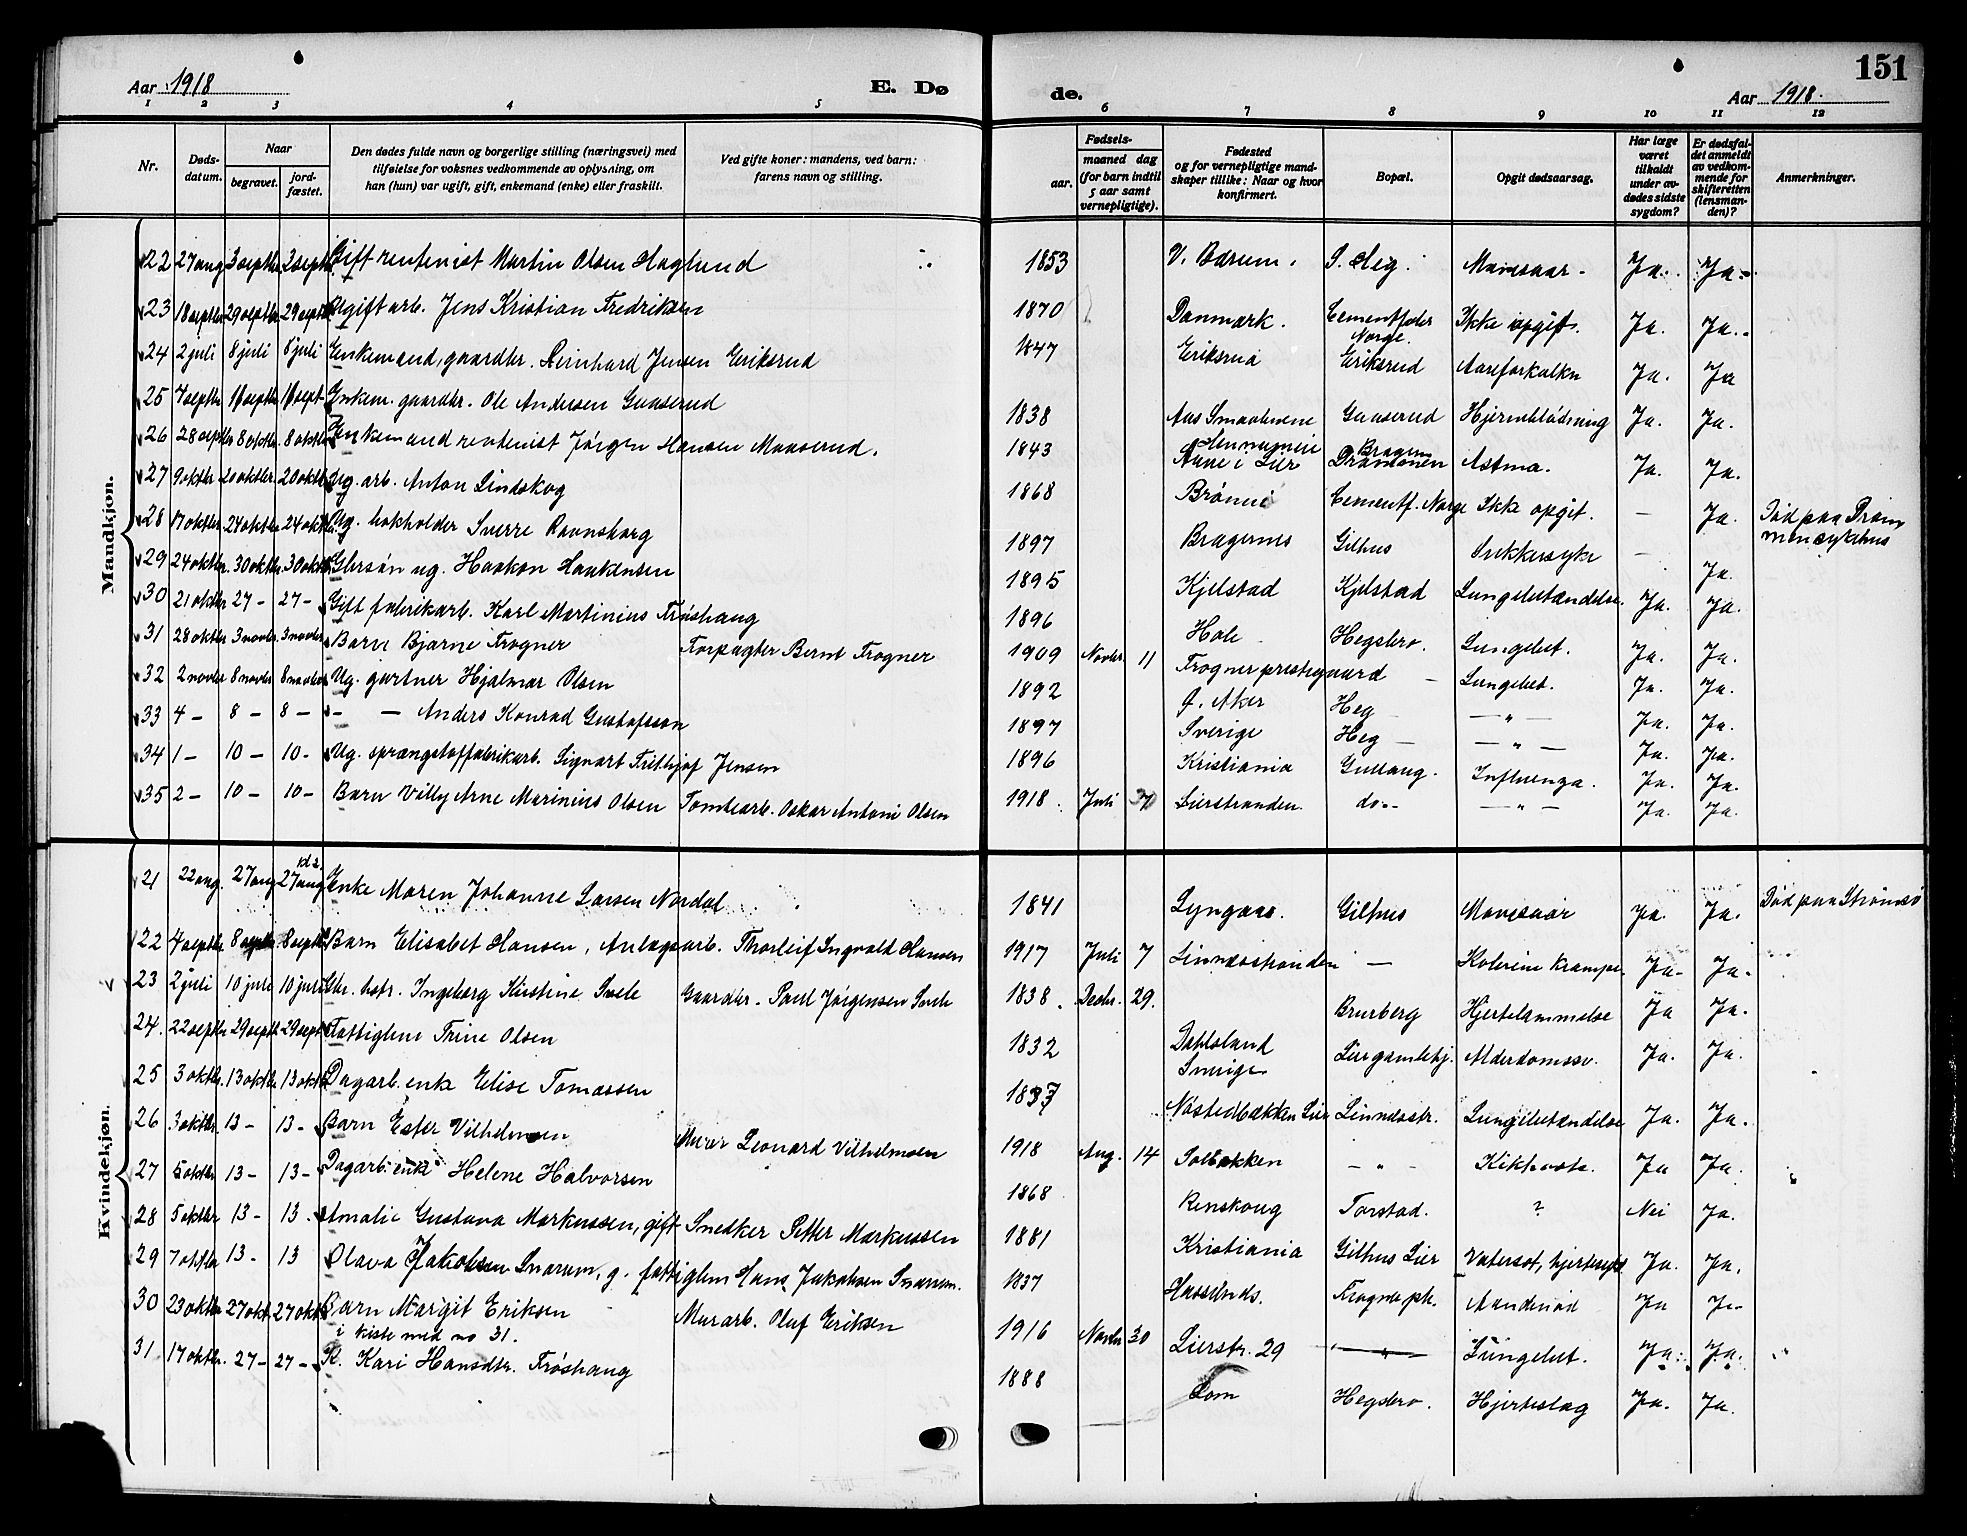 151
Aar 1918
E. Dø
de.
Aar 1918.
1 2 3 4 5 6 7 8 9 10 11 12
Nr.
Døds-
datum.
Naar
begravet.
jord-
fæstet.
Den dødes fulde navn og borgerlige stilling (næringsvei) med
tilføielse for voksnes vedkommende av oplysning, om
han (hun) var ugift, gift, enkemand (enke) eller fraskilt.
Ved gifte koner: mandens, ved barn:
farens navn og stilling.
Fødsels-
aar.
maaned dag
(for barn indtil
5 aar samt
vernepligtige).
Fødested
og for vernepligtige mand-
skaper tillike: Naar og hvor
konfirmert.
Bopæl.
Opgit dødsaarsag.
Har læge
været
tilkaldt
under av-
dødes sidste
sygdom?
Er dødsfal-
det anmeldt
av vedkom-
mende for
skifteretten
(lensman-
den)?
Anmerkninger.
Mandkjøn.
22 27 aug 3 septbr 3 septbr Gift rentenist Martin Olsen Haglund 1853 V. Bærum. S. Heg. Mavesaar - Ja. Ja.-
23 18 septbr 29 septbr 29 septbr Ugift arb. Jens Kristian Fredriksen 1870 Danmark. Cementfabr Norge. Ikke opgit. Ja. Ja.
24 2 juli 8 juli 8 juli Enkemand, gaardbr. Reinhard Jensen Eriksrud 1847 Eriksrud Eriksrud Aareforkalkn Ja. Ja
25 4 septbr 11 septbr 11 sept Enkem. gaardbr. Ole Andersen Gaaserud 1838 Aas Smaalenene Gaaserud Hjerneblødning Ja. Ja.
26 28 septbr 8 oktbr 8 oktbr Enkemand rentenist Jørgen Hansen Maaserud. 1843 i Lier Bragern Drammen Astma. Ja. Ja.
27 9 oktbr 20 oktbr 20 oktbr Ug. arb. Anton Lindskog 1868 Cementf. Norge Ikke opgit. - Ja.
28 17 oktbr 24 oktbr 24 oktbr Ug. bokholder Sverre Ravnsborg 1897 Bragernes Gilhus Sukkersyke - Ja. Død paa Dram
men sykehus
29 24 oktbr. 30 oktbr. 30 oktbr Gbrsøn ug. Haakon Haakensen 1895 Kjelstad Kjelstad Lungebetændelse. Ja. Ja.
30 21 oktbr 27 - 27 - Gift fabrikarb. Karl Martinius Trøshaug 1896 Hole Hegsbro. Lungebet. Ja. Ja.
31 28 oktbr 3 novbr 3 novbr Barn Bjarne Frogner Forpagter Bernt Frogner 1909 Novbr. 11 Frogner prestegaard - Lungebet. Ja. Ja.
32 2 novbr 8 novbr 8 novbr Ug. gartner Hjalmar Olsen 1892 Ø. Aker Heg - " - Ja. Ja.
33 4 - 8 - 8 - - - Anders Konrad Gustafsson 1897 Sverige Heg - - " - Ja. Ja.
34 1 - 10 - 10 - Ug. sprængstoffabrikarb. Sigvart Frithjof Jensen 1896 Kristiania Gullaug. Influenza. Ja. Ja.
35 2 - 10 - 10 - Barn Villy Arne Marinius Olsen Tomtearb. Oskar Antoni Olsen 1918 Juli Lierstranden. do - - " - Ja. Ja.
Kvindekjøn.
21 22 aug. 27 aug 27 aug Enke Maren Johanne Larsen Nordal 1841 Lyngaas. Gilhus Mavesaar Ja. Ja. Død paa Strømsø
22 4 septbr 8 septbr 8 septbr Barn Elisabet Hansen, Anlægsarb. Thorleif Ingvald Hansen 1917 Juli 7 Linnesstranden - Kolerine krampe Ja- Ja-
23 2 juli 10 juli 10 juli Gbr. hstr. Ingeborg Kirstine Svele Gaardbr. Paul Jørgensen Svele 1838. Decbr. 29. Brurberg Hjertelammelse Ja Ja.
24. 22 septbr 29 septbr 29 septbr Fattiglem Trine Olsen 1832 Dahlsland
Sverige Liergamlehj. Alderdomssv. Ja. Ja.
25 3 oktbr. 13 oktbr. 13 oktbr Dagarb.enk Elise Tomassen 1837 Nøstedbækken Lier Linnesstr. Lungebetændelse Ja. Ja.
26 3 oktbr. 13 - 13 - Barn Ester Vilhelmsen Murer Leonard Vilhelmsen 1918 Aug. 14 Solbakken - " - Kikhoste. Ja Ja.
27 5 oktbr 13 - 13 - Dagarb.enk Helene Halvorsen 1868 Renskoug Torstad. ? Nei Ja.
28 5 oktbr 13 - 13 - Amalie Gustava Markussen, gift Snedker Petter Markussen 1881 Kristiania Gilhus Lier Vatersot, hjertesyk Ja. Ja.
29 7 oktbr 13 - 13 Olava Jakobsen Snarum, g. fattiglem Hans Jakobsen Snarum. 1837 Frogner ph. Aandenød Ja Ja-
30 23 oktbr 27 oktbr. 27 oktbr Barn Margit Eriksen Murarb. Oluf Eriksen 1916 Novbr 30 Lierstr. 29 - " - Lungebet. Ja. Ja.
i kiste med no 31.
31. 17 oktbr. 27 - 27 - K. Kari Hansdtr. Trøshaug 1888 Lom Hegsbro. Hjerteslag Ja. Ja.